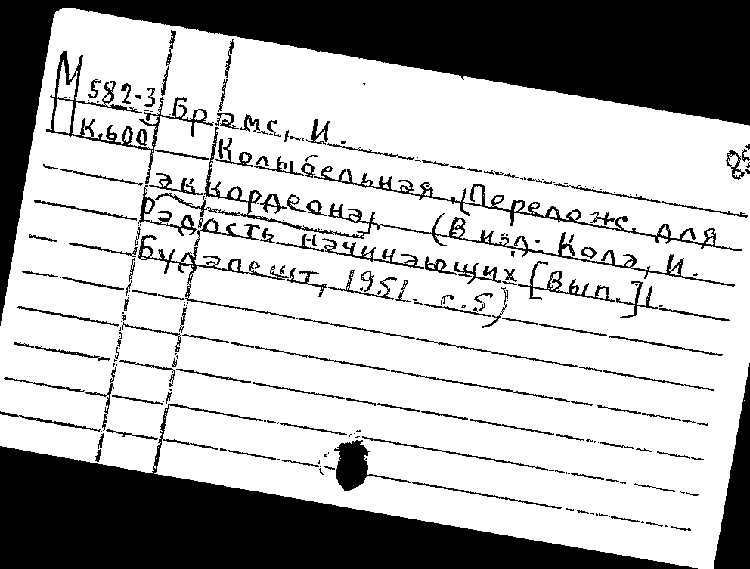 М 582-3
К.600
Брамс, И.
Колыбельная. [Перелож. для
аккордеона]. (В изд: Кола, И.
Радость начинающих. [Вып.] 1.
Будапешт, 1951. с.5)